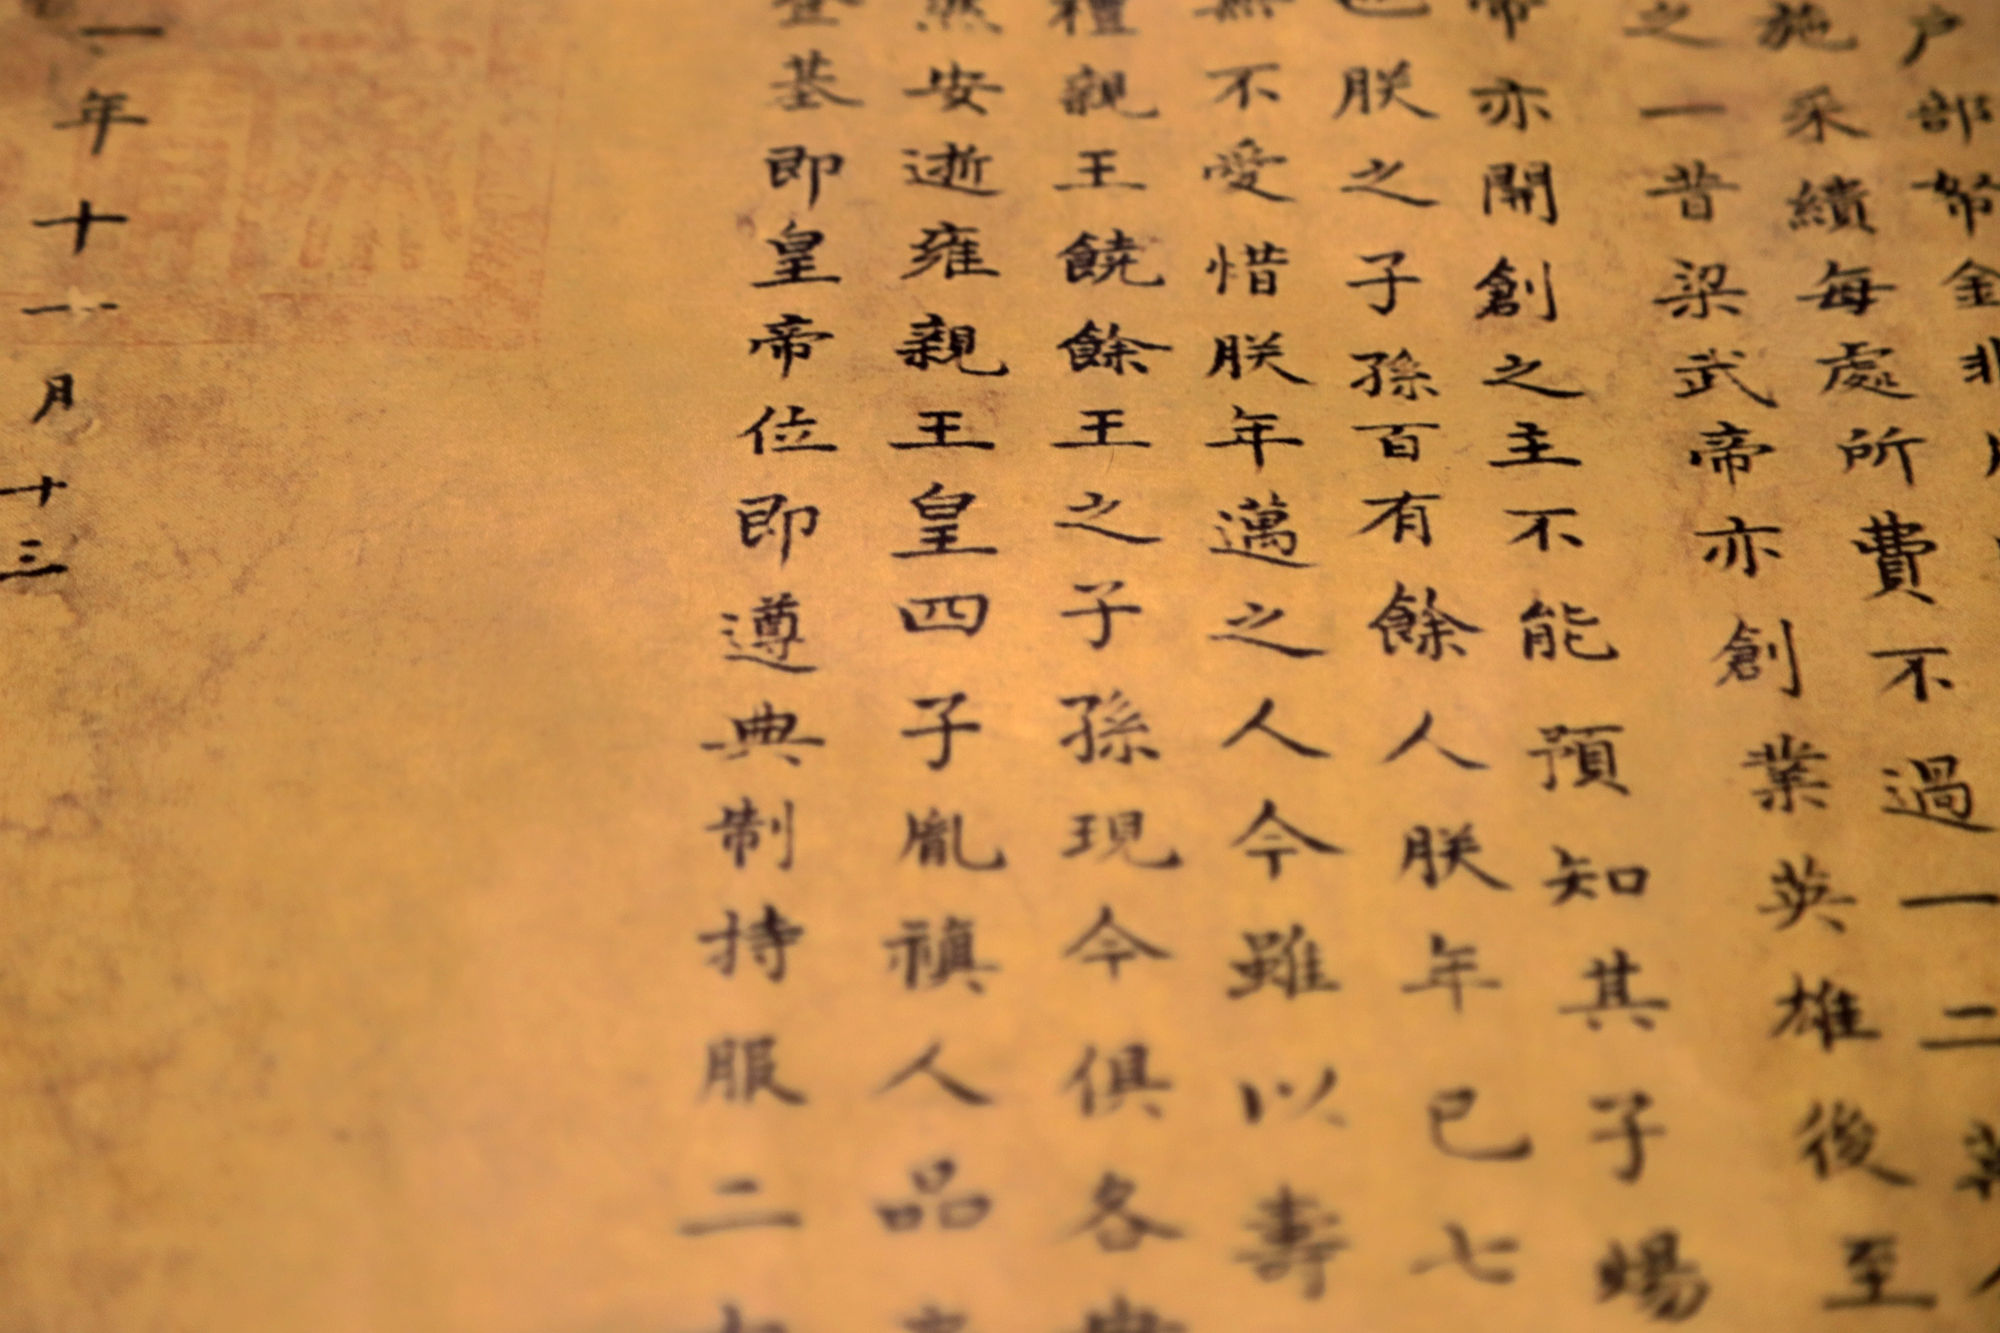 户部帑金非
施采績每處所費不過一二
之一昔梁武帝亦創業英雄後至
帝亦開創之主不能預知其子
也朕之子孫百有餘人朕年已七
無不愛惜朕年邁之人今雖以壽
禮親王饒餘王之子孫現今俱各安
然安逝雍親王皇四子胤禛人品
登基即皇帝位即遵典制持服二
年十一月十三